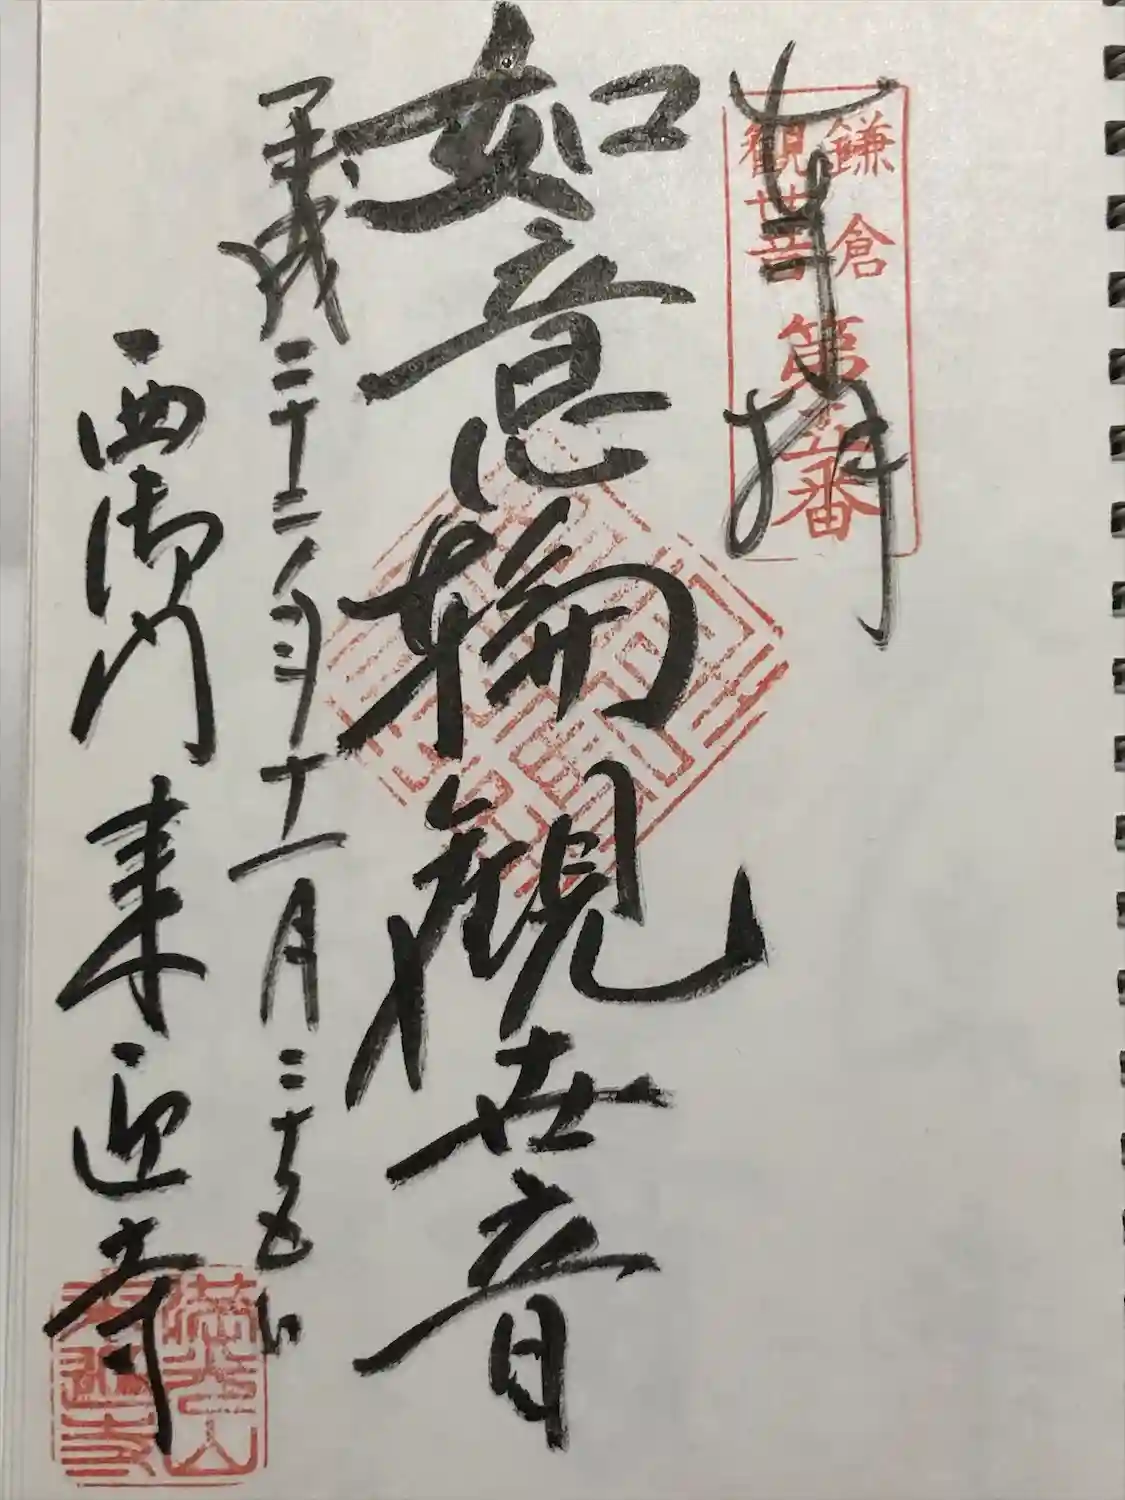 奉拝
鎌倉
観世音
第五番
如意輪観世音
平成二十二年十一月二十五日
西御門 来迎寺
満光山
来迎寺